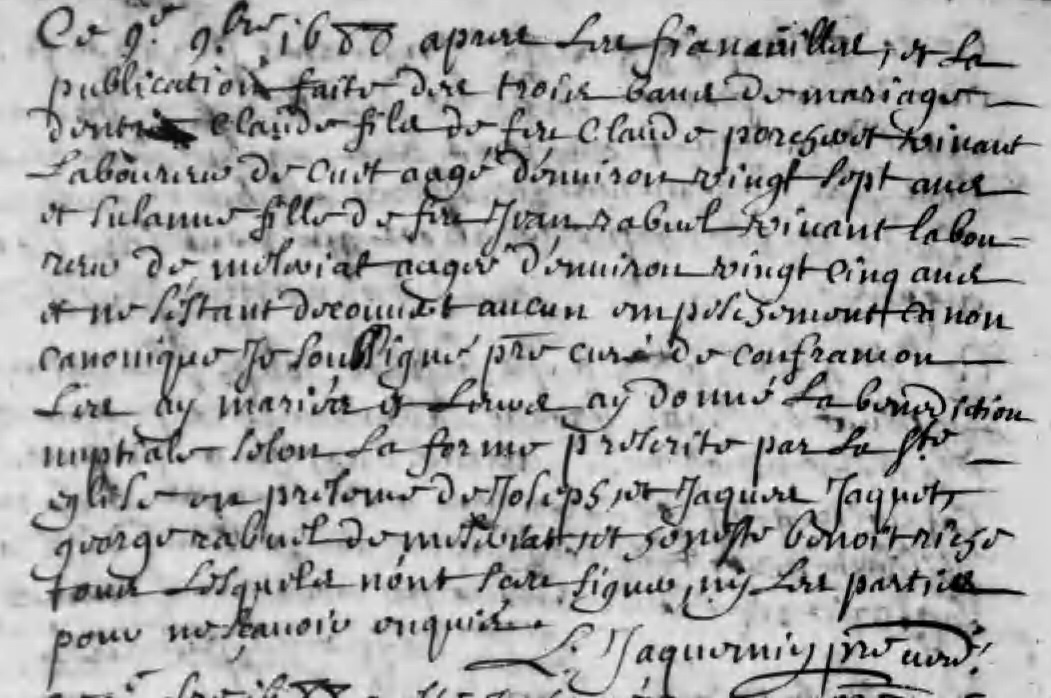 Ce 9e 9bre 1688 apres les fiancailles, et la
publication faite des trois bans de mariage
dentre Claude fils de feu Claude porchet vivant
Laboureur de Cuet aagé d'environ vingt sept ans
et Susanne fille de feu Jean rabuel vivant labou=
reur de aagée d'environ vingt cinq ans
et ne s'estant decouvert aucun empeschement non
canonique Je soubsigné pre curé de confrancon
Les ay mariés et Leurs ay donné La benediction
nuptiale selon La forme prescrite par La Ste
eglise en presence de Joseph, et Jaques Jaquet,
george rabuel de et honeste benoit riche
tous Lesquels n'ont sceu signer, ny Les parties
pour ne scavoir enquis.
pre curé